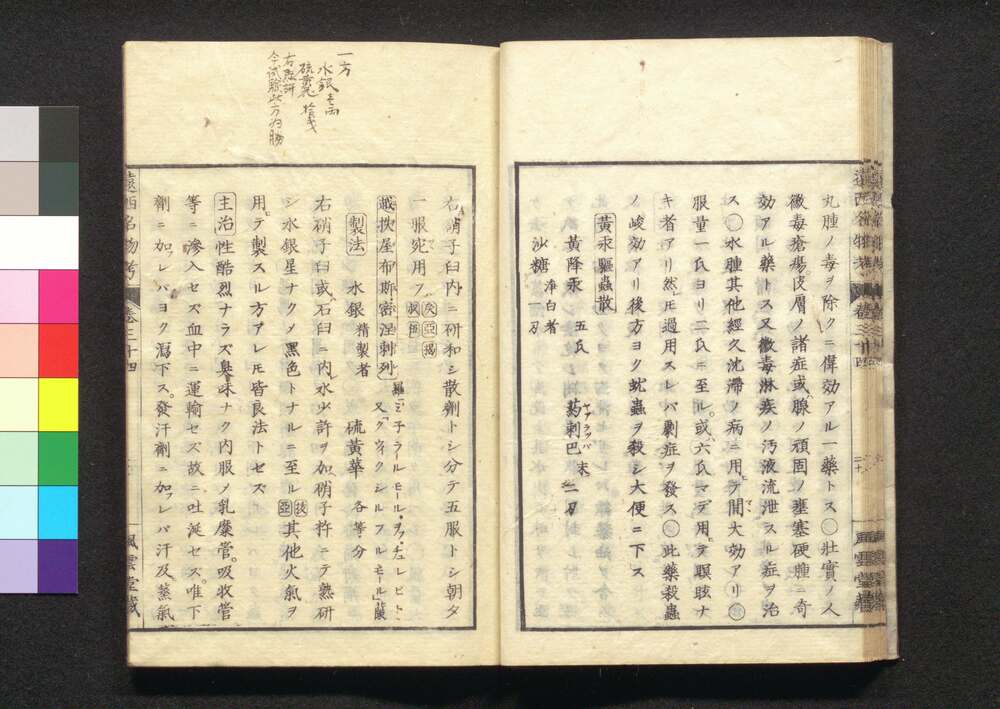 丸腫ノ毒ヲ除クニ偉効アル一藥トス○壯實ノ人
黴毒瘡瘍皮層ノ諸症或ハ腺ノ頑固ノ壅塞硬腫ニ奇
効アル藥トス又黴毒淋疾ノ汚液流泄スル症ヲ治
ス○水腫其他經久沈滞ノ病ニ用ヒテ間大効アリ○
服量一氏ヨリ二氏ニ至ル。或六氏マデ用ヒテ瞑眩ナ
キ者アリ然ドモ過用スレバ劇症ヲ發ス○此藥殺蟲
ノ峻効アリ後方ヨク蚘蟲ヲ殺シ大便ニ下ス
黃汞驅蟲散
黃降汞 五氏 葯剌巴 末 二刃
沙糖 浄白者 一刃
右硝子臼内ニ研和シ散劑トシ分テ五服トシ朝夕
一服宛用フ
越扶屋布斯密涅剌列
製法 水銀 精製者 硫黃華 各等分
右硝子臼或ハ石臼ニ内水少許ヲ加硝子杵ニテ熟研
シ水銀星ナクメ黑色トナルニ至ル 其他火氣ヲ
用テ製スル方アレドモ皆良法トセズ
主治 性酷烈ナラズ臭味ナク内服ノ乳糜管。吸收管
等ニ滲入セズ血中ニ運輸セズ故ニ吐涎セズ。唯下
劑ニ加フレバヨク瀉下ス。發汗劑ニ加フレバ汗及蒸氣
遠西名物考
卷三十四
風雲堂藏
一方
水銀 壱両
硫黄花 拾弐戔
右為研
今試験此方為勝